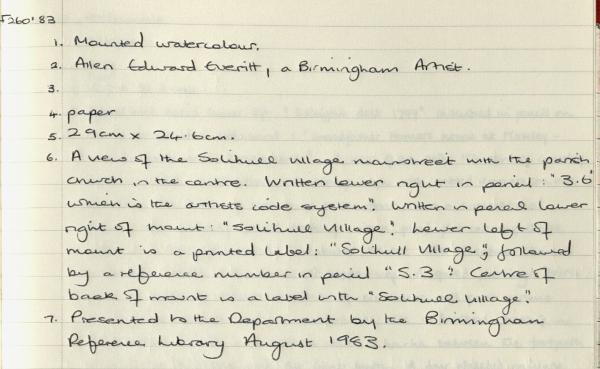 F260'83
1. Mounted watercolour.
2. Allen Edward Everitt, a Birmingham Artist.
3.
4. paper
5. 29cm x 24.6cm.
6. A view of the Solihull village mainstreet with the parish
church in the centre. Written lower right in pencil: "3.6"
which is the artists code system". Written in pencil lower
right of mount: "Solihull Village". Lower left of
mount is a printed label: "Solihull Village", followed
by a reference number in pencil "S.3". Centre of
back of mount is a label with "Solihull Village".
7. Presented to the Department by the Birmingham
Reference Library August 1983.